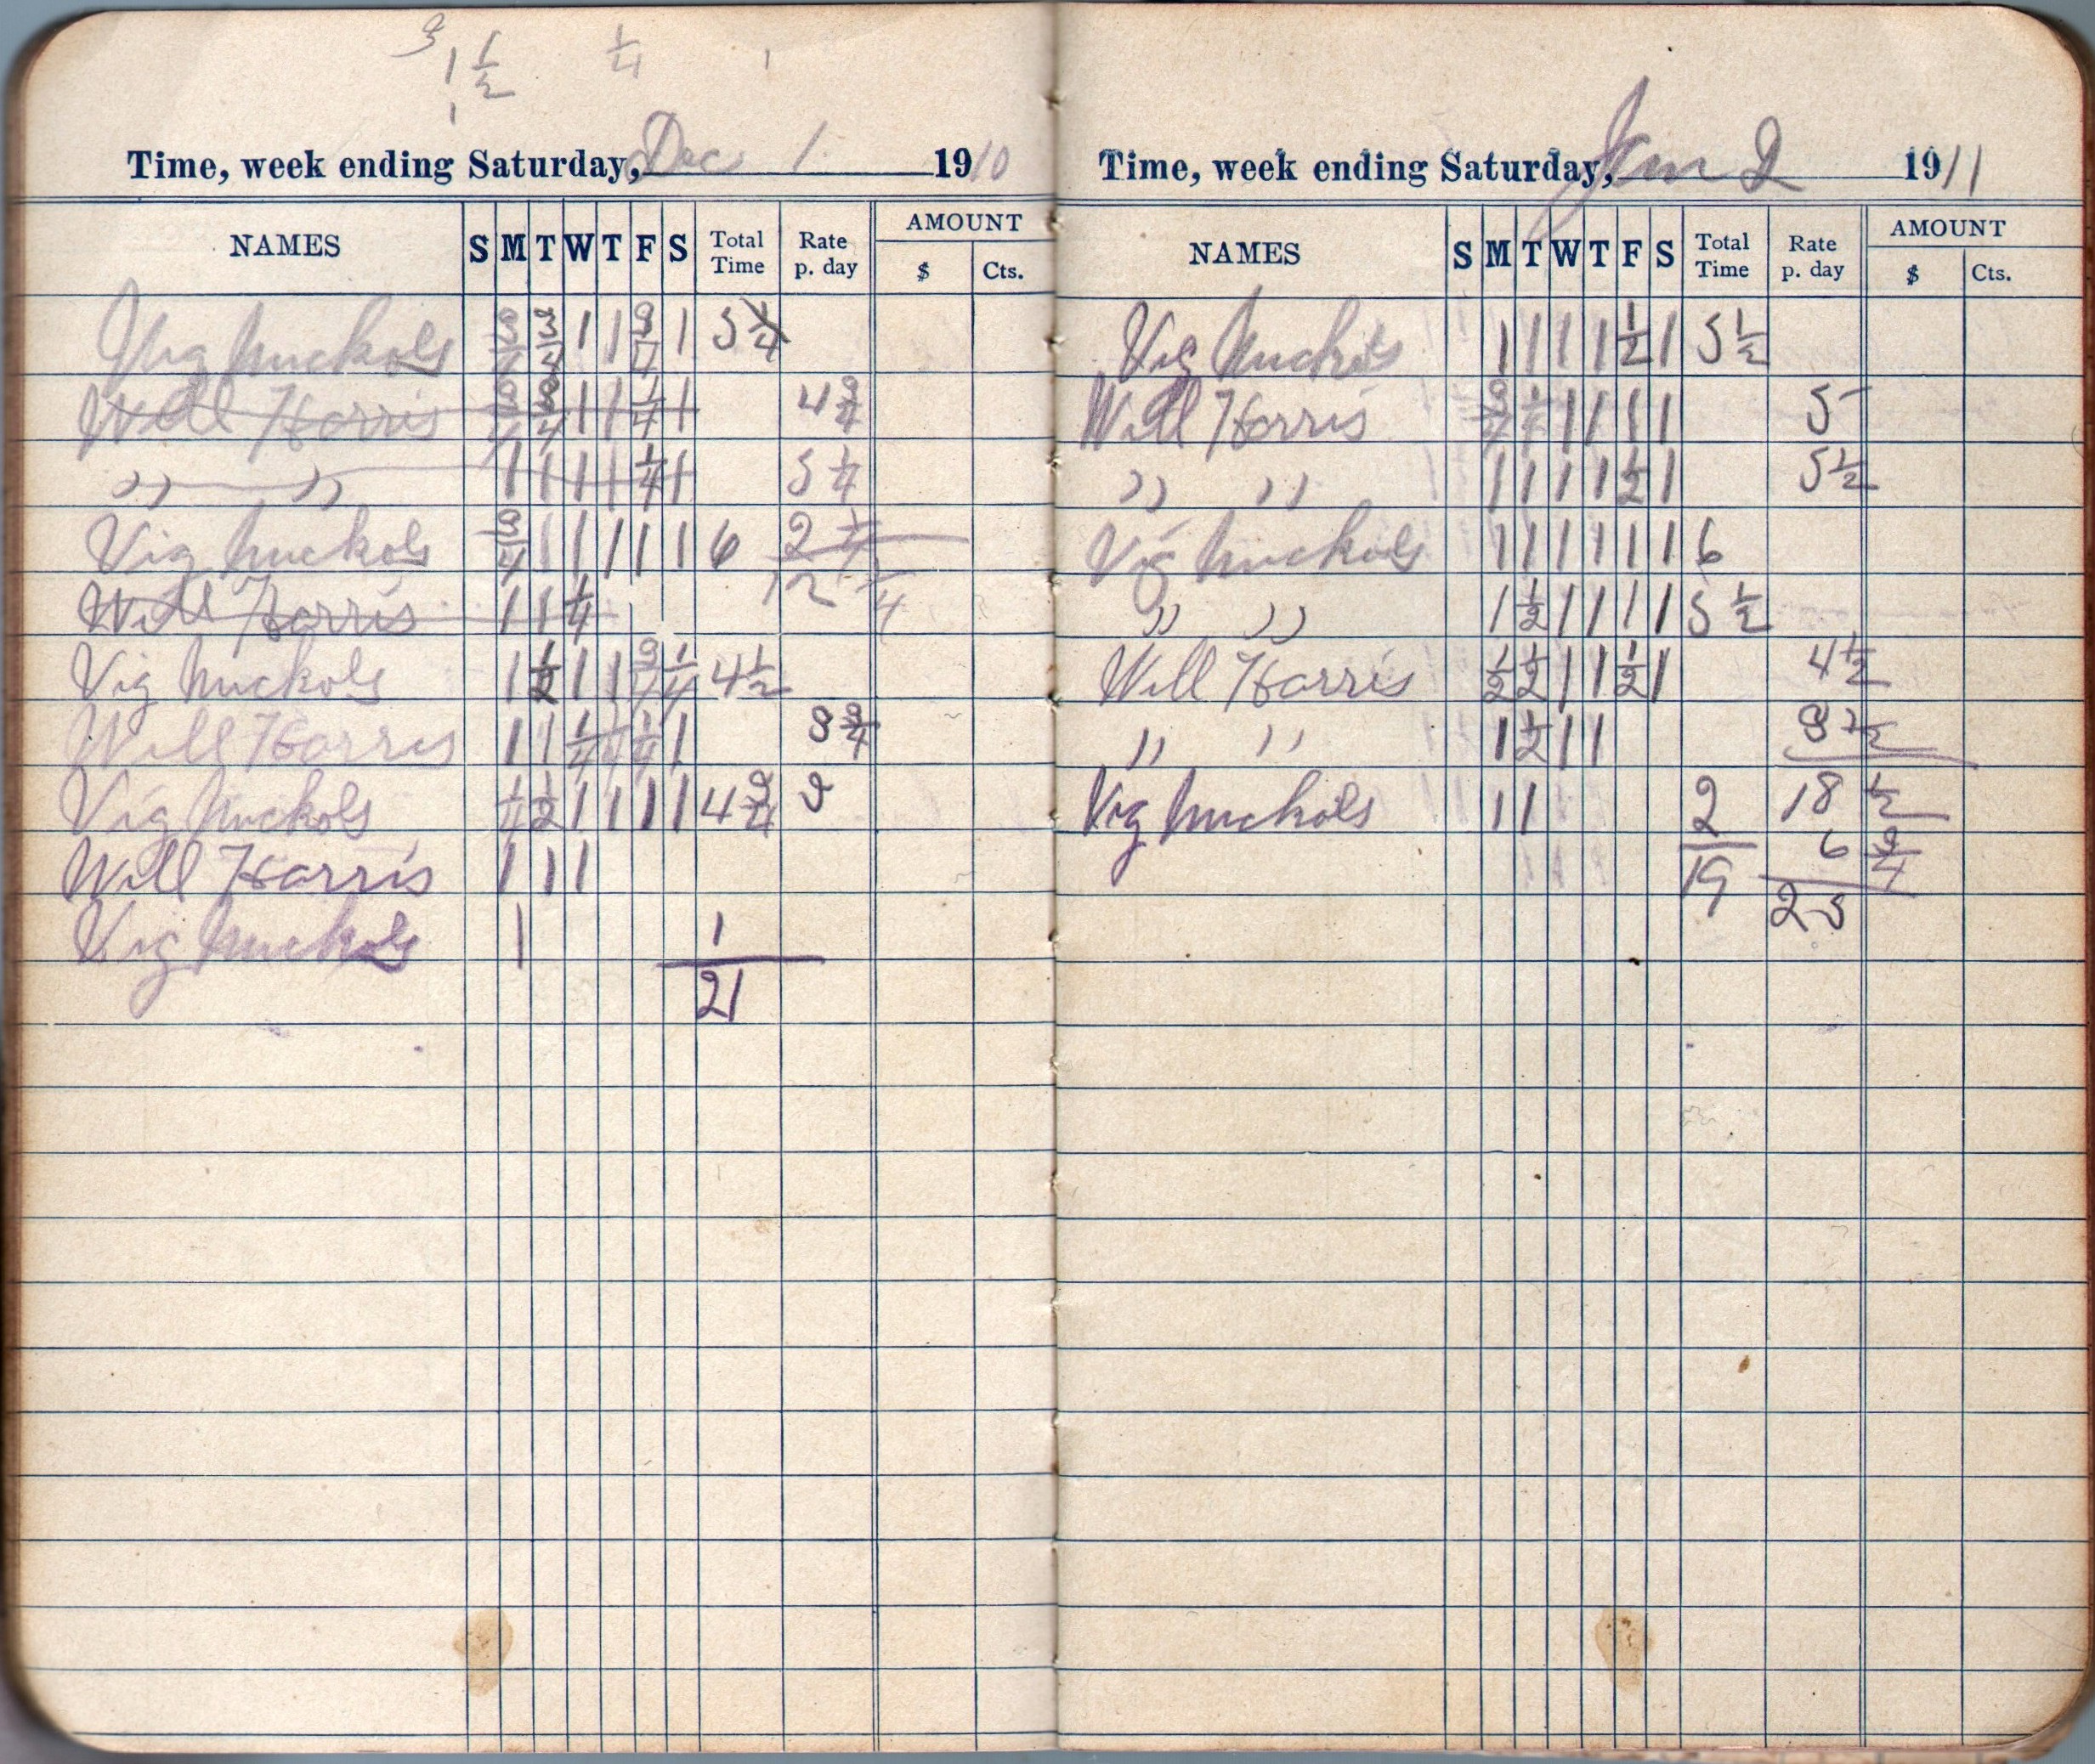 3 1 1/2 1/4 1
1
Time, week ending Saturday, Dec 1. 1910
NAMES S M T W T F S Total Time Rate p. day AMOUNT $ Cts.
Vig Nuckols 3/4 3/4 1 1 3/4 1 5 1/4
Will Harris 3/4 3/4 1 1 1/4 1 4 3/4
" " 1 1 1 1 1/4 1 5 1/4
Vig Nuckols 3/4 1 1 1 1 1 6 2 1/4
Will Harris 1 1 1/4 12 1/4
Vig Nuckols 1 1/2 1 1 3/4 1/4 4 1/2
Will Harris 1 1 1/4 1/4 1/4 1 3 3/4
Vig Nuckols 1/4 1/2 1 1 1 1 4 3/4 3
Will Harris 1 1 1
Vig Nuckols 1 1
21
Time, week ending Saturday, Jan 2 1911
NAMES S M T W T F S Total Time Rate p. day AMOUNT $ Cts.
Vig Nuckols 1 1 1 1 1/2 1 5 1/2
Will Harris 3/4 1/4 1 1 1 1 5
" " 1 1 1 1 1/2 1 5 1/2
Vig Nuckols 1 1 1 1 1 1 6
" " 1 1/2 1 1 1 1 5 1/2
Will Harris 1/2 1/2 1 1 1/2 1 4 1/2
" " 1 1/2 1 1 3 1/2
Vig Nuckols 1 1 2 18 1/2
19 6 3/4
25